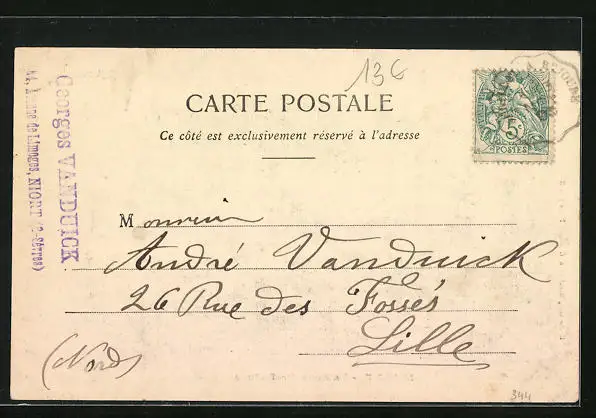 13€
CARTE POSTALE
Ce côté est exclusivement réservé à l'adresse
5c
POSTES
Georges VANDUICK
de Limoges, NIORT (2-Sèvres)
Monsieur
André Vanduick
26 Rue des Fossés
Lille
(Nord)
344